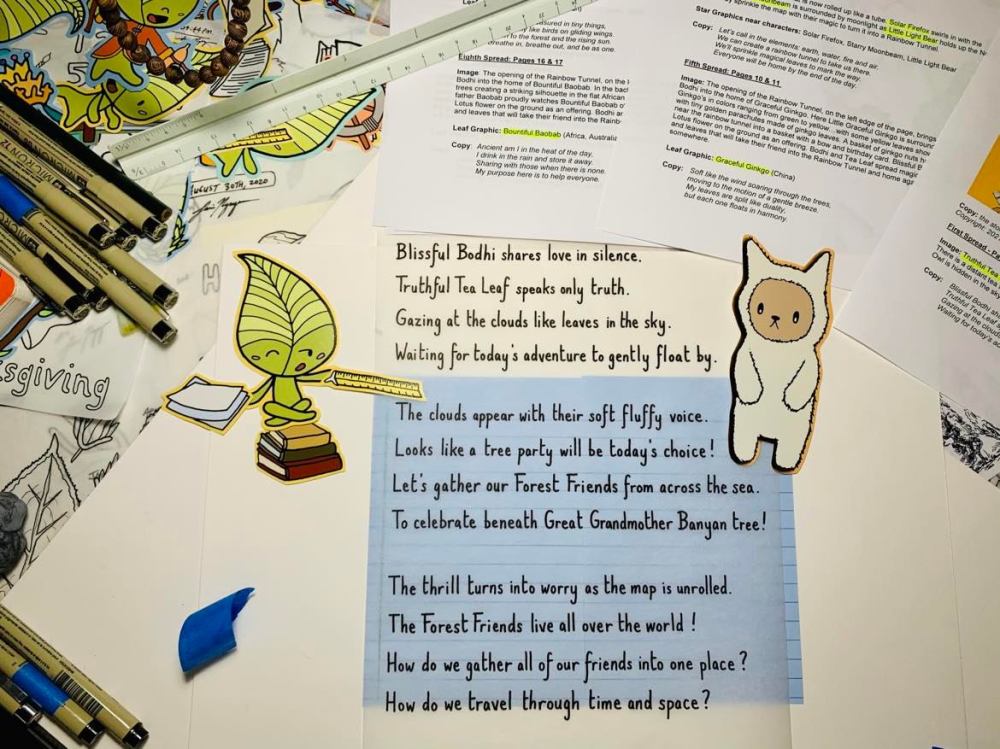 Blissful Bodhi shares love in silence.
Truthful Tea Leaf speaks only truth.
Gazing at the clouds like leaves in the sky.
Waiting for today's adventure to gently float by.
The clouds appear with their soft fluffy voice.
Looks like a tree party will be today's choice!
Let's gather our Forest Friends from across the sea.
To celebrate beneath Great Grandmother Banyan tree!
The thrill turns into worry as the map is unrolled.
The Forest Friends live all over the world!
How do we gather all of our friends into one place?
How do we travel through time and space?
AUGUST 30TH, 2020
sgiving
sured in tiny things,
like birds on gliding wings.
to the forest and the rising sun.
breathe in, breathe out, and be as one.
Eighth Spread: Pages 16 & 17
Image: The opening of the Rainbow Tunnel, on the
Bodhi into the home of Bountiful Baobab. In the
trees creating a striking silhouette in the flat African
father Baobab proudly watches Bountiful Baobab
Lotus flower on the ground as an offering. Bodhi
and leaves that will take their friend into the
Leaf Graphic: Bountiful Baobab (Africa,
Copy: Ancient am I in the heat of the day.
I drink in the rain and store it away.
Sharing with those when there is none.
My purpose here is to help everyone.
is now rolled up like a tube. Solar Firefox swirls in with the
is surrounded by moonlight as Little Light Bear holds up the
sprinkle the map with their magic to turn it into a Rainbow Tunnel.
Star Graphics near characters: Solar Firefox, Starry Moonbeam, Little Light Bear
Copy: Let's call in the elements: earth, water, fire and air.
We can create a rainbow tunnel to take us there.
We'll sprinkle magical leaves to mark the way.
Everyone will be home by the end of the day.
Fifth Spread: Pages 10 & 11
Image: The opening of the Rainbow Tunnel, on the left edge of the page, brings
Bodhi into the home of Graceful Ginkgo. Here Little Graceful Ginkgo is
Ginkgo's in colors ranging from green to yellow...with some yellow leaves
with tiny golden parachutes made of ginkgo leaves. A basket of ginkgo nuts
near the rainbow tunnel into a basket with a bow and birthday card. Blissful
Lotus flower on the ground as an offering. Bodhi and Tea Leaf spread
and leaves that will take their friend into the Rainbow Tunnel and home
somewhere.
Leaf Graphic: Graceful Ginkgo (China)
Copy: Soft like the wind soaring through the trees,
moving to the motion of a gentle breeze.
My leaves are split like duality,
but each one floats in harmony.
Copy: the
Copyright, 202
First Spread -
Image: Truthful Tea
There is a distant tea
Owl is hidden in the
Copy: Blissful Bodhi
Truthful Tea Leaf
Gazing at the
Waiting for today's